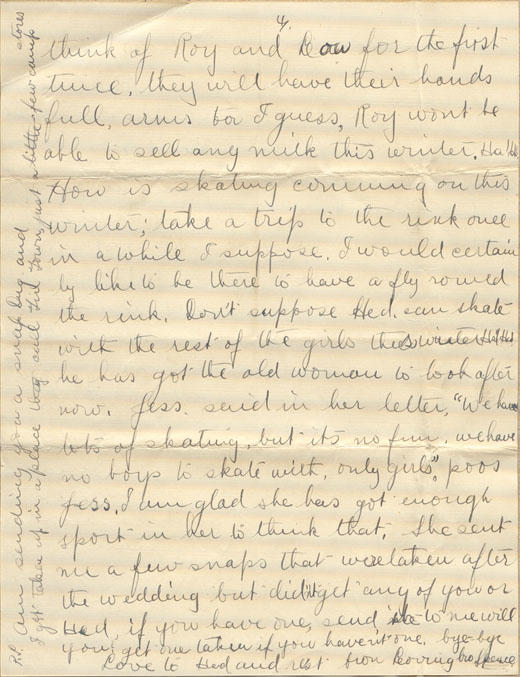 4.
think of Roy and Dow for the first
twice, they will have their hands
full, arms too I guess, Roy wont be
able to sell any milk this winter. Ha! Ha
How is skating comming on this
winter; take a trip to the rink once
in a while I suppose. I would certain
ly like to be there to have a fly round
the rink. Don't suppose Hed. can skate
with the rest of the girls this winter Ha! Ha
he has got the old woman to look after
now. Jess. said in her letter, "We have
lots of skating, but its no fun, we have
no boys to skate with, only girls", poos
Jess. I am glad she has got enough
sport in her to think that. She sent
me a few snaps that were taken after
the wedding but did'nt get any of you or
Hed, if you have one, send to me will
you, get one taken if you haven't one. bye-bye
Love to Hed and rest from Loving bro Spence
P.S. Am sending you a snap big and
I got taken up in a place they call Hil Town, just a little few camp
stores